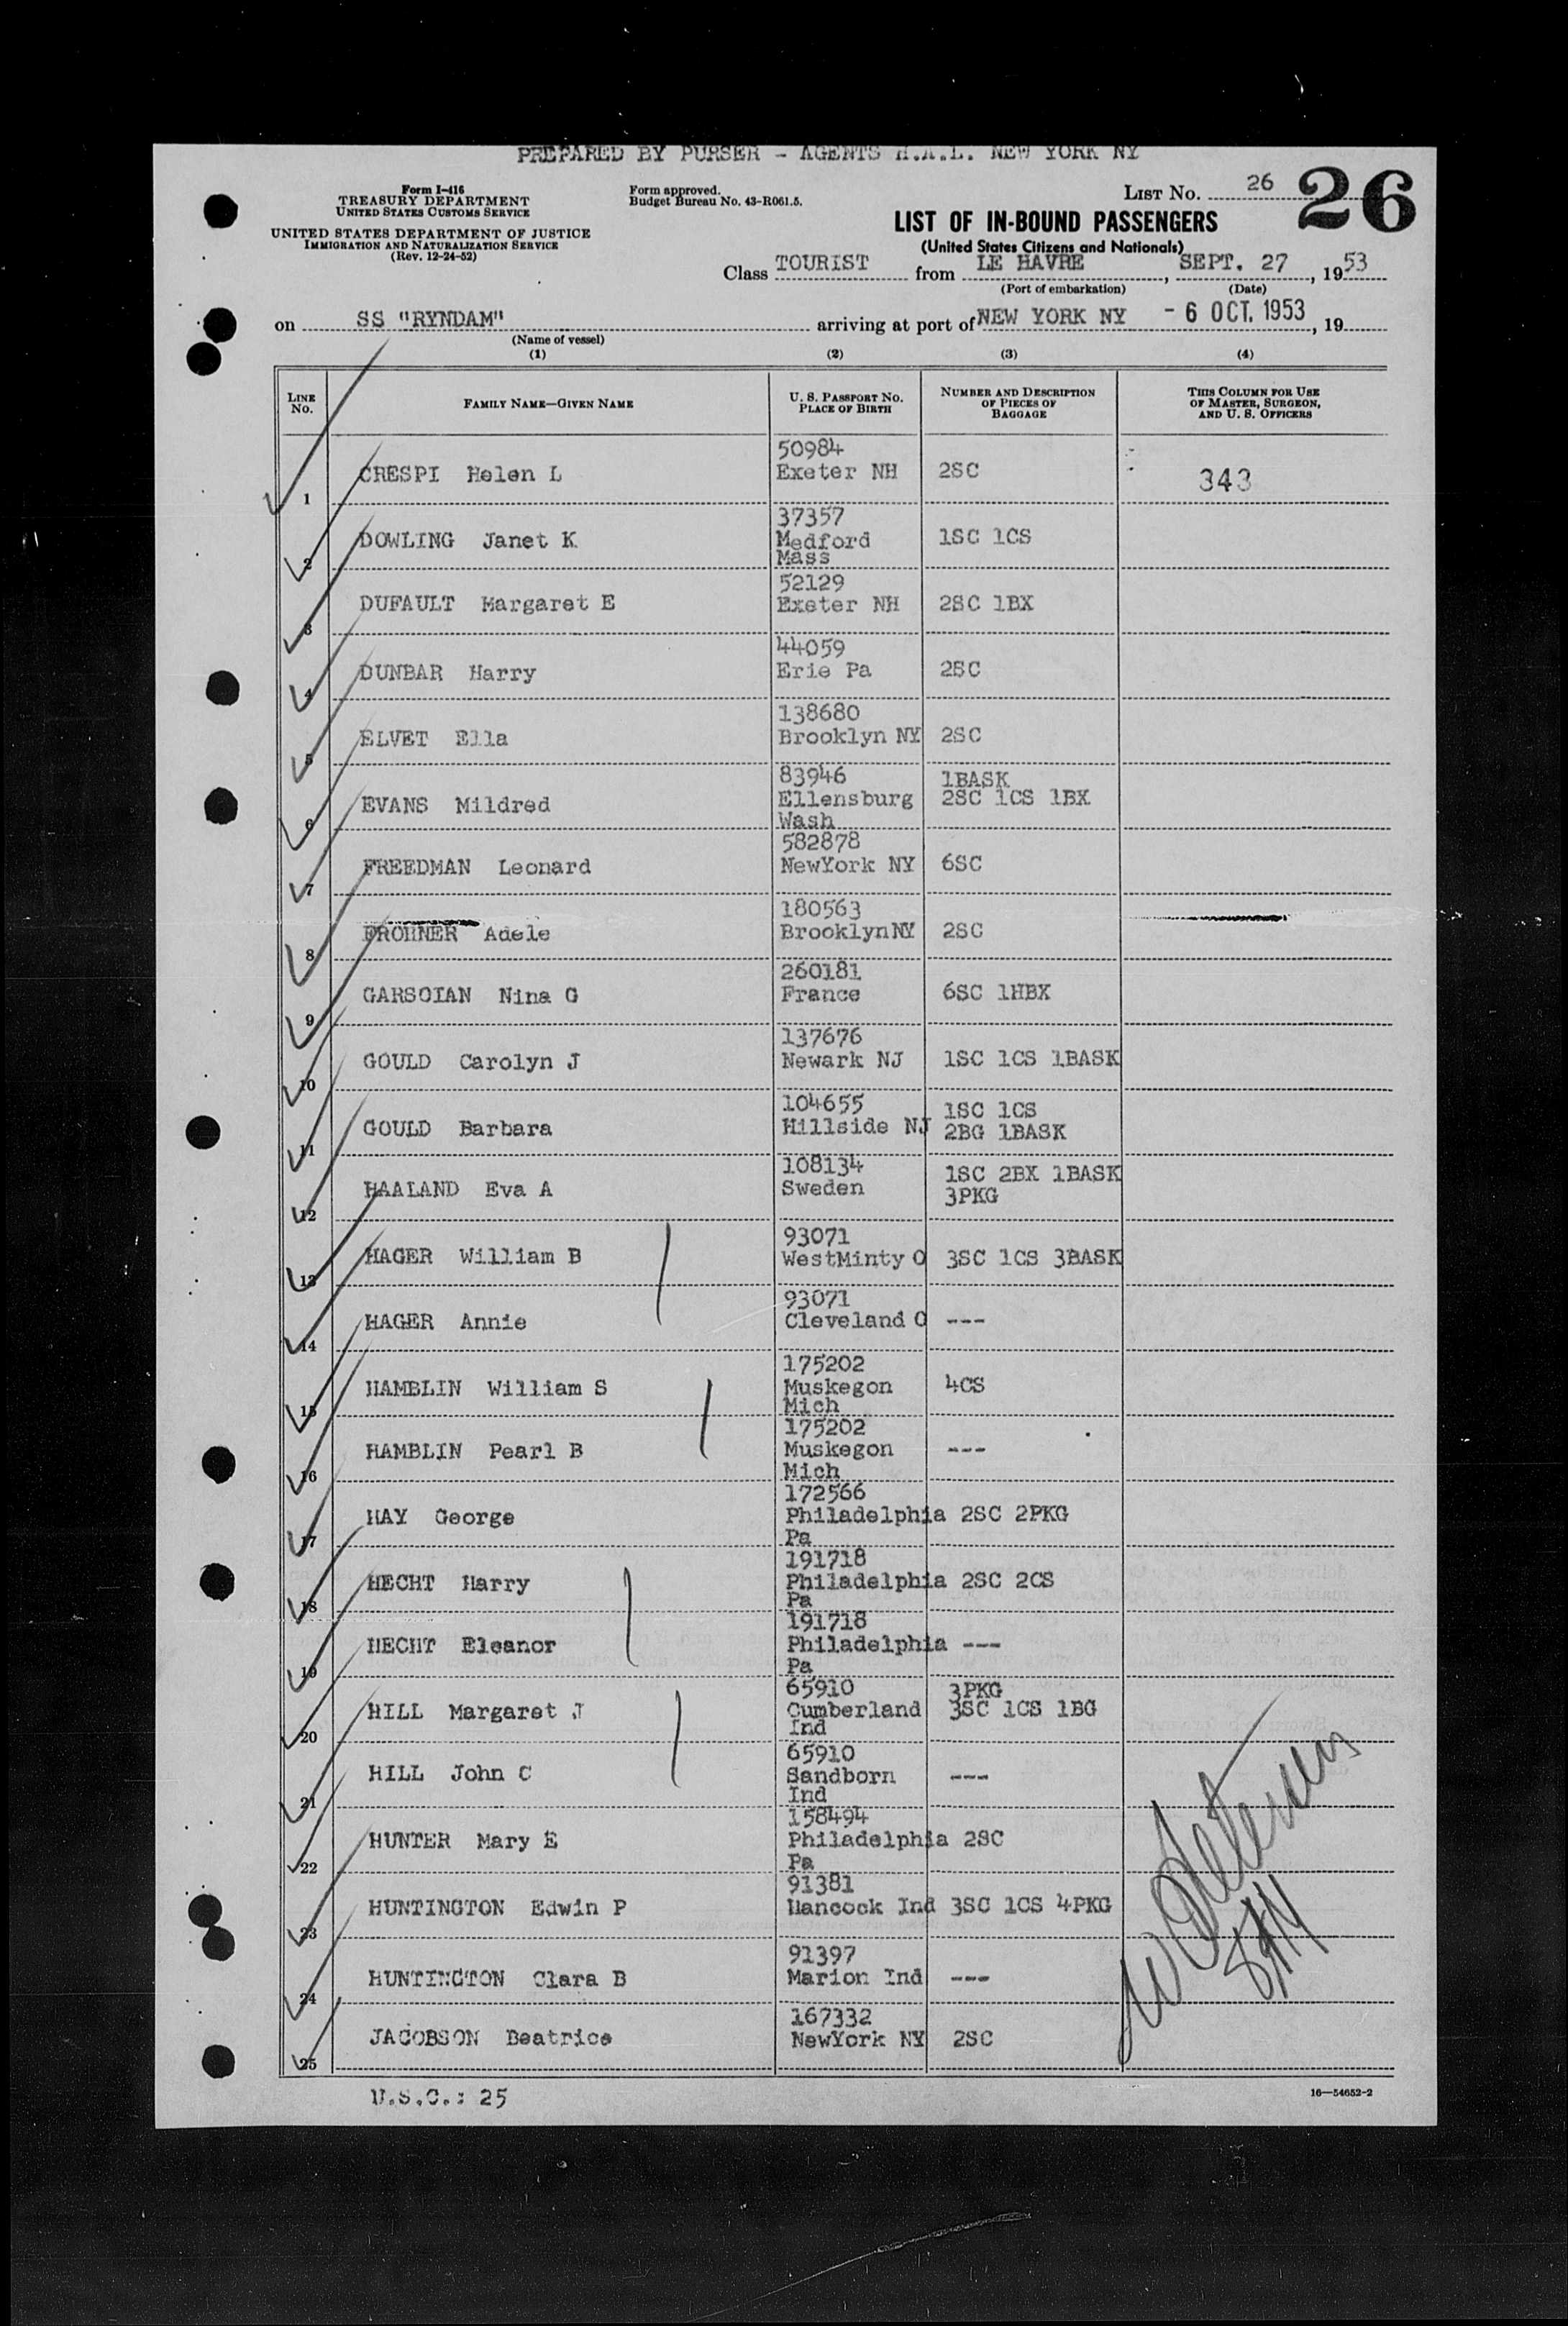 PREPARED BY PURSER - AGENTS H.A.L. NEW YORK NY
Form I-416
TREASURY DEPARTMENT
UNITED STATES CUSTOMS SERVICE
UNITED STATES DEPARTMENT OF JUSTICE
IMMIGRATION AND NATURALIZATION SERVICE
(Rev. 12-24-52)
Form approved.
Budget Bureau No. 43-R061.5.
LIST No. 26 26
LIST OF IN-BOUND PASSENGERS
(United States Citizens and Nationals)
Class TOURIST from LE HAVRE, SEPT. 27, 1953
(Port of embarkation) (Date)
on SS "RYNDAM" arriving at port of NEW YORK NY - 6 OCT. 1953, 19
(Name of vessel)
(1) (2) (3) (4)
LINE No. FAMILY NAME—GIVEN NAME U. S. PASSPORT No. PLACE OF BIRTH NUMBER AND DESCRIPTION OF PIECES OF BAGGAGE THIS COLUMN FOR USE OF MASTER, SURGEON, AND U. S. OFFICERS
1 CRESPI Helen L 50984 Exeter NH 2SC 343
2 DOWLING Janet K 37357 Medford Mass 1SC 1CS
3 DUFAULT Margaret E 52129 Exeter NH 2SC 1BX
4 DUNBAR Harry 44059 Erie Pa 2SC
5 ELVET Ella 138680 Brooklyn NY 2SC
6 EVANS Mildred 83946 Ellensburg Wash 1BASK 2SC 1CS 1BX
7 FREEDMAN Leonard 582878 NewYork NY 6SC
8 FROHNER Adele 180563 BrooklynNY 2SC
9 GARSOIAN Nina G 260181 France 6SC 1HBX
10 GOULD Carolyn J 137676 Newark NJ 1SC 1CS 1BASK
11 GOULD Barbara 104655 Hillside NJ 1SC 1CS 2BG 1BASK
12 HAALAND Eva A 108134 Sweden 1SC 2BX 1BASK 3PKG
13 HAGER William B 93071 WestMinty O 3SC 1CS 3BASK
14 HAGER Annie 93071 Cleveland O ---
15 HAMBLIN William S 175202 Muskegon Mich 4CS
16 HAMBLIN Pearl B 175202 Muskegon Mich ---
17 HAY George 172566 Philadelphia Pa 2SC 2PKG
18 HECHT Harry 191718 Philadelphia Pa 2SC 2CS
19 HECHT Eleanor 191718 Philadelphia Pa ---
20 HILL Margaret J 65910 Cumberland Ind 3PKG 3SC 1CS 1BG
21 HILL John C 65910 Sandborn Ind ---
22 HUNTER Mary E 158494 Philadelphia Pa 2SC
23 HUNTINGTON Edwin P 91381 Hancock Ind 3SC 1CS 4PKG
24 HUNTINGTON Clara B 91397 Marion Ind ---
25 JACOBSON Beatrice 167332 NewYork NY 2SC
U.S.C.: 25
16—54652-2